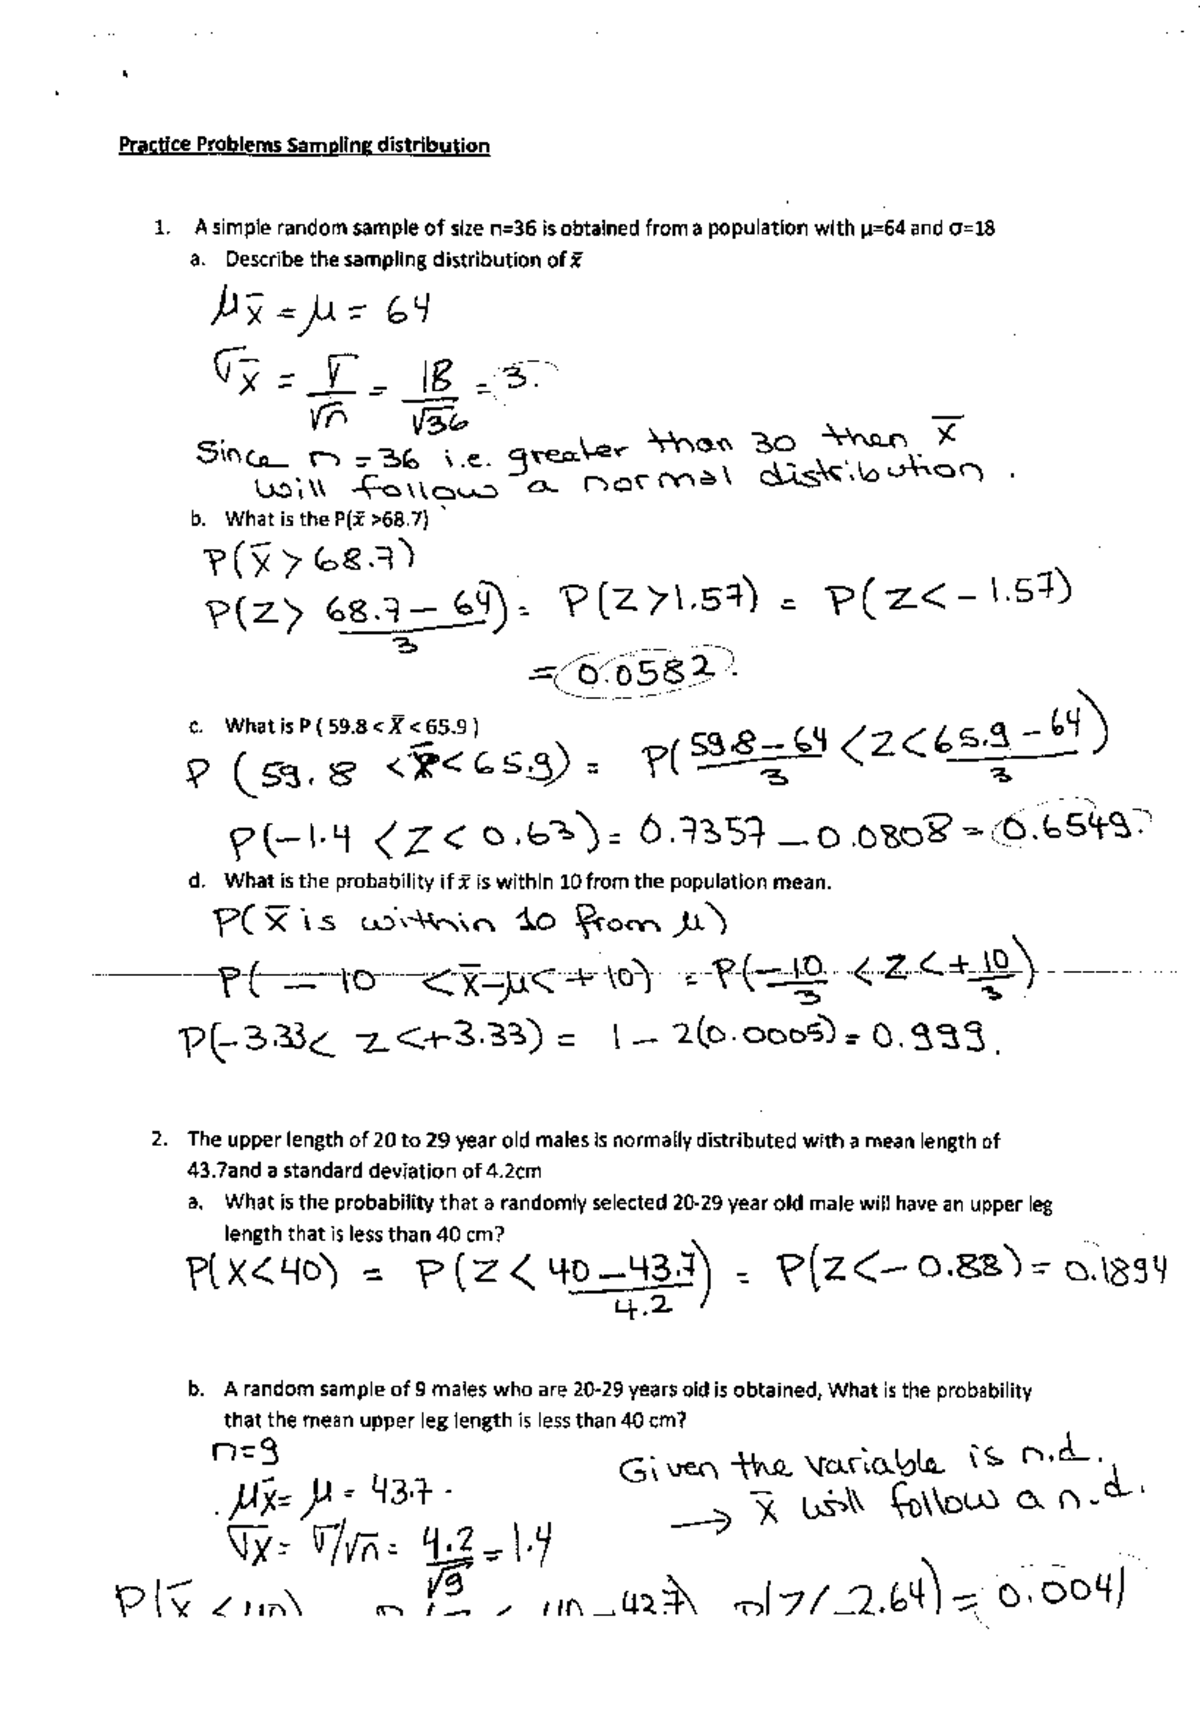 Practice Problems Sampling distribution
1. A simple random sample of size n=36 is obtained from a population with μ=64 and σ=18
a. Describe the sampling distribution of x̄
μx̄ = μ = 64
σx̄ = σ/√n = 18/√36 = 3.
Since n = 36 i.e. greater than 30 then x̄
will follow a normal distribution.
b. What is the P(x̄ >68.7)
P(x̄ > 68.7)
P(Z > (68.7 - 64)/3) = P(Z > 1.57) = P(Z < -1.57)
= 0.0582.
c. What is P ( 59.8 < X̄ < 65.9 )
P (59.8 < x̄ < 65.9) = P((59.8-64)/3 < Z < (65.9-64)/3)
P(-1.4 < Z < 0.63) = 0.7357 - 0.0808 = 0.6549.
d. What is the probability if x̄ is within 10 from the population mean.
P(x̄ is within 10 from μ)
P( -10 < x̄-μ < +10) = P(-10/3 < Z < +10/3)
P(-3.33 < Z < +3.33) = 1 - 2(0.0005) = 0.999.
2. The upper length of 20 to 29 year old males is normally distributed with a mean length of
43.7and a standard deviation of 4.2cm
a. What is the probability that a randomly selected 20-29 year old male will have an upper leg
length that is less than 40 cm?
P(X<40) = P(Z < (40-43.7)/4.2) = P(Z < -0.88) = 0.1894
b. A random sample of 9 males who are 20-29 years old is obtained, What is the probability
that the mean upper leg length is less than 40 cm?
n=9
μx̄ = μ = 43.7.
σx̄ = σ/√n = 4.2/√9 = 1.4
Given the variable is n.d.,
→ x̄ will follow a n.d.
P(x̄ < -2.64) = 0.0041